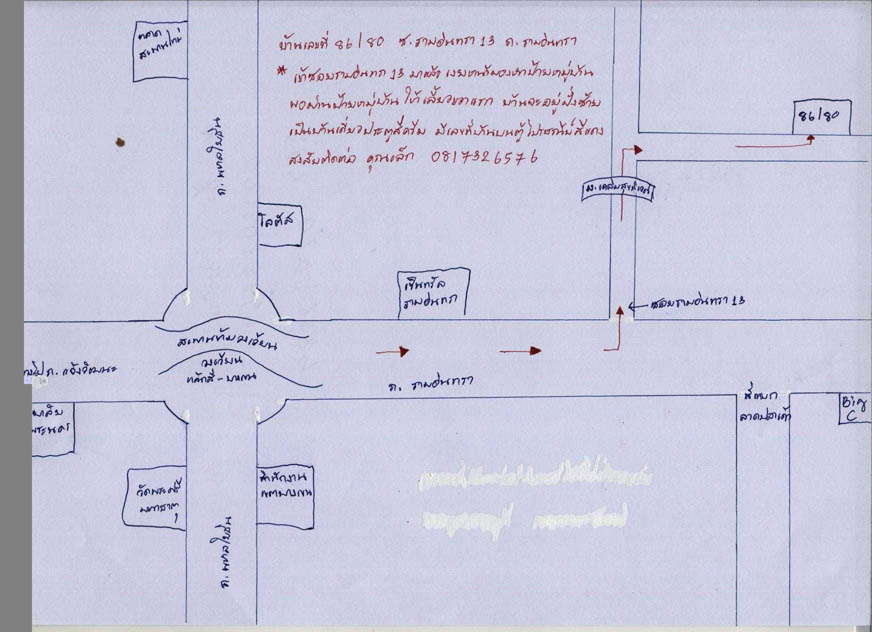 ตลาด
สะพานใหม่
บ้านเลขที่ 86/80 ซ. รามอินทรา 13 ถ. รามอินทรา
* เข้าซอยรามอินทรา 13 มาแล้ว
พอผ่านป้ายหมู่บ้าน ให้เลี้ยวขวาแรก บ้านจะอยู่ฝั่งซ้าย
เป็นบ้านเดี่ยวประตูสีครีม มีเลขที่บ้านบนตู้ไปรษณีย์สีแดง
สงสัยติดต่อ คุณเล็ก 0817326576
86/80
ถ. พหลโยธิน
โลตัส
เซ็นทรัล
รามอินทรา
ซอยรามอินทรา 13
สะพานข้ามวงเวียน
วงเวียน
หลักสี่ - บางเขน
ถ. แจ้งวัฒนะ
ถ. รามอินทรา
สี่แยก
ลาดปลาเค้า
Big
C
พระนคร
วัดพระศรี
มหาธาตุ
สำนักงาน
เขตบางเขน
ถ. พหลโยธิน